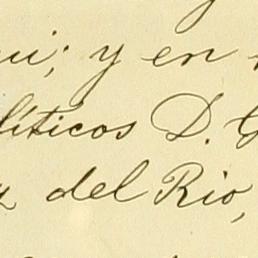 ui; y en
líticos D. G
del Rio,